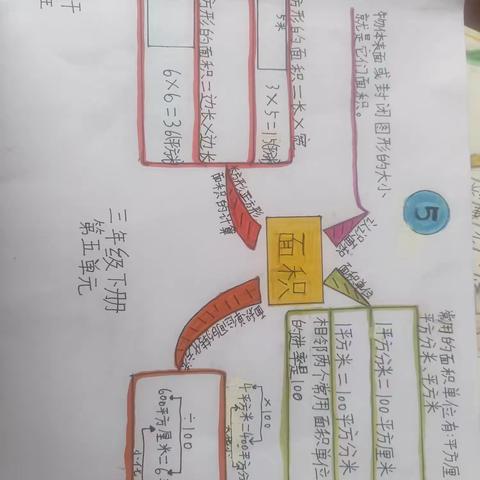 5
物体表面或封闭图形的大小
就是它们面积。
认识面积
面积
面积单位
常用的面积单位有:平方厘
平方分米、平方米
1平方分米=100平方厘米
1平方米=100平方分米
相邻两个常用面积单位
的进率是100
方形的面积=长×宽
5米
3×5=15
方形的面积=边长×边长
6×6=36平方
长方形、正方形
面积的计算
三年级下册
第五单元
×100
4平方米=400平方分
÷100
600平方厘米=6